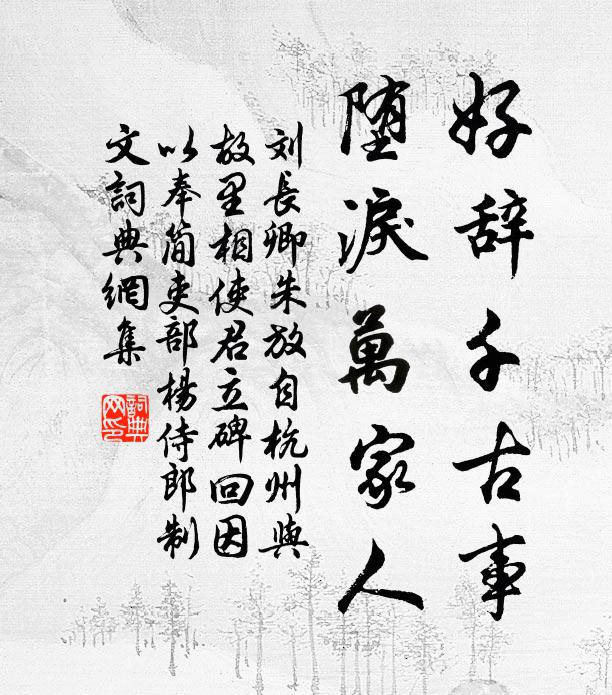 好辞千古事
堕淚萬家人
刘長卿朱放自杭州與
故里相使君立碑回因
以奉简吏部楊侍郎制
文詞典網集
詞典
网印